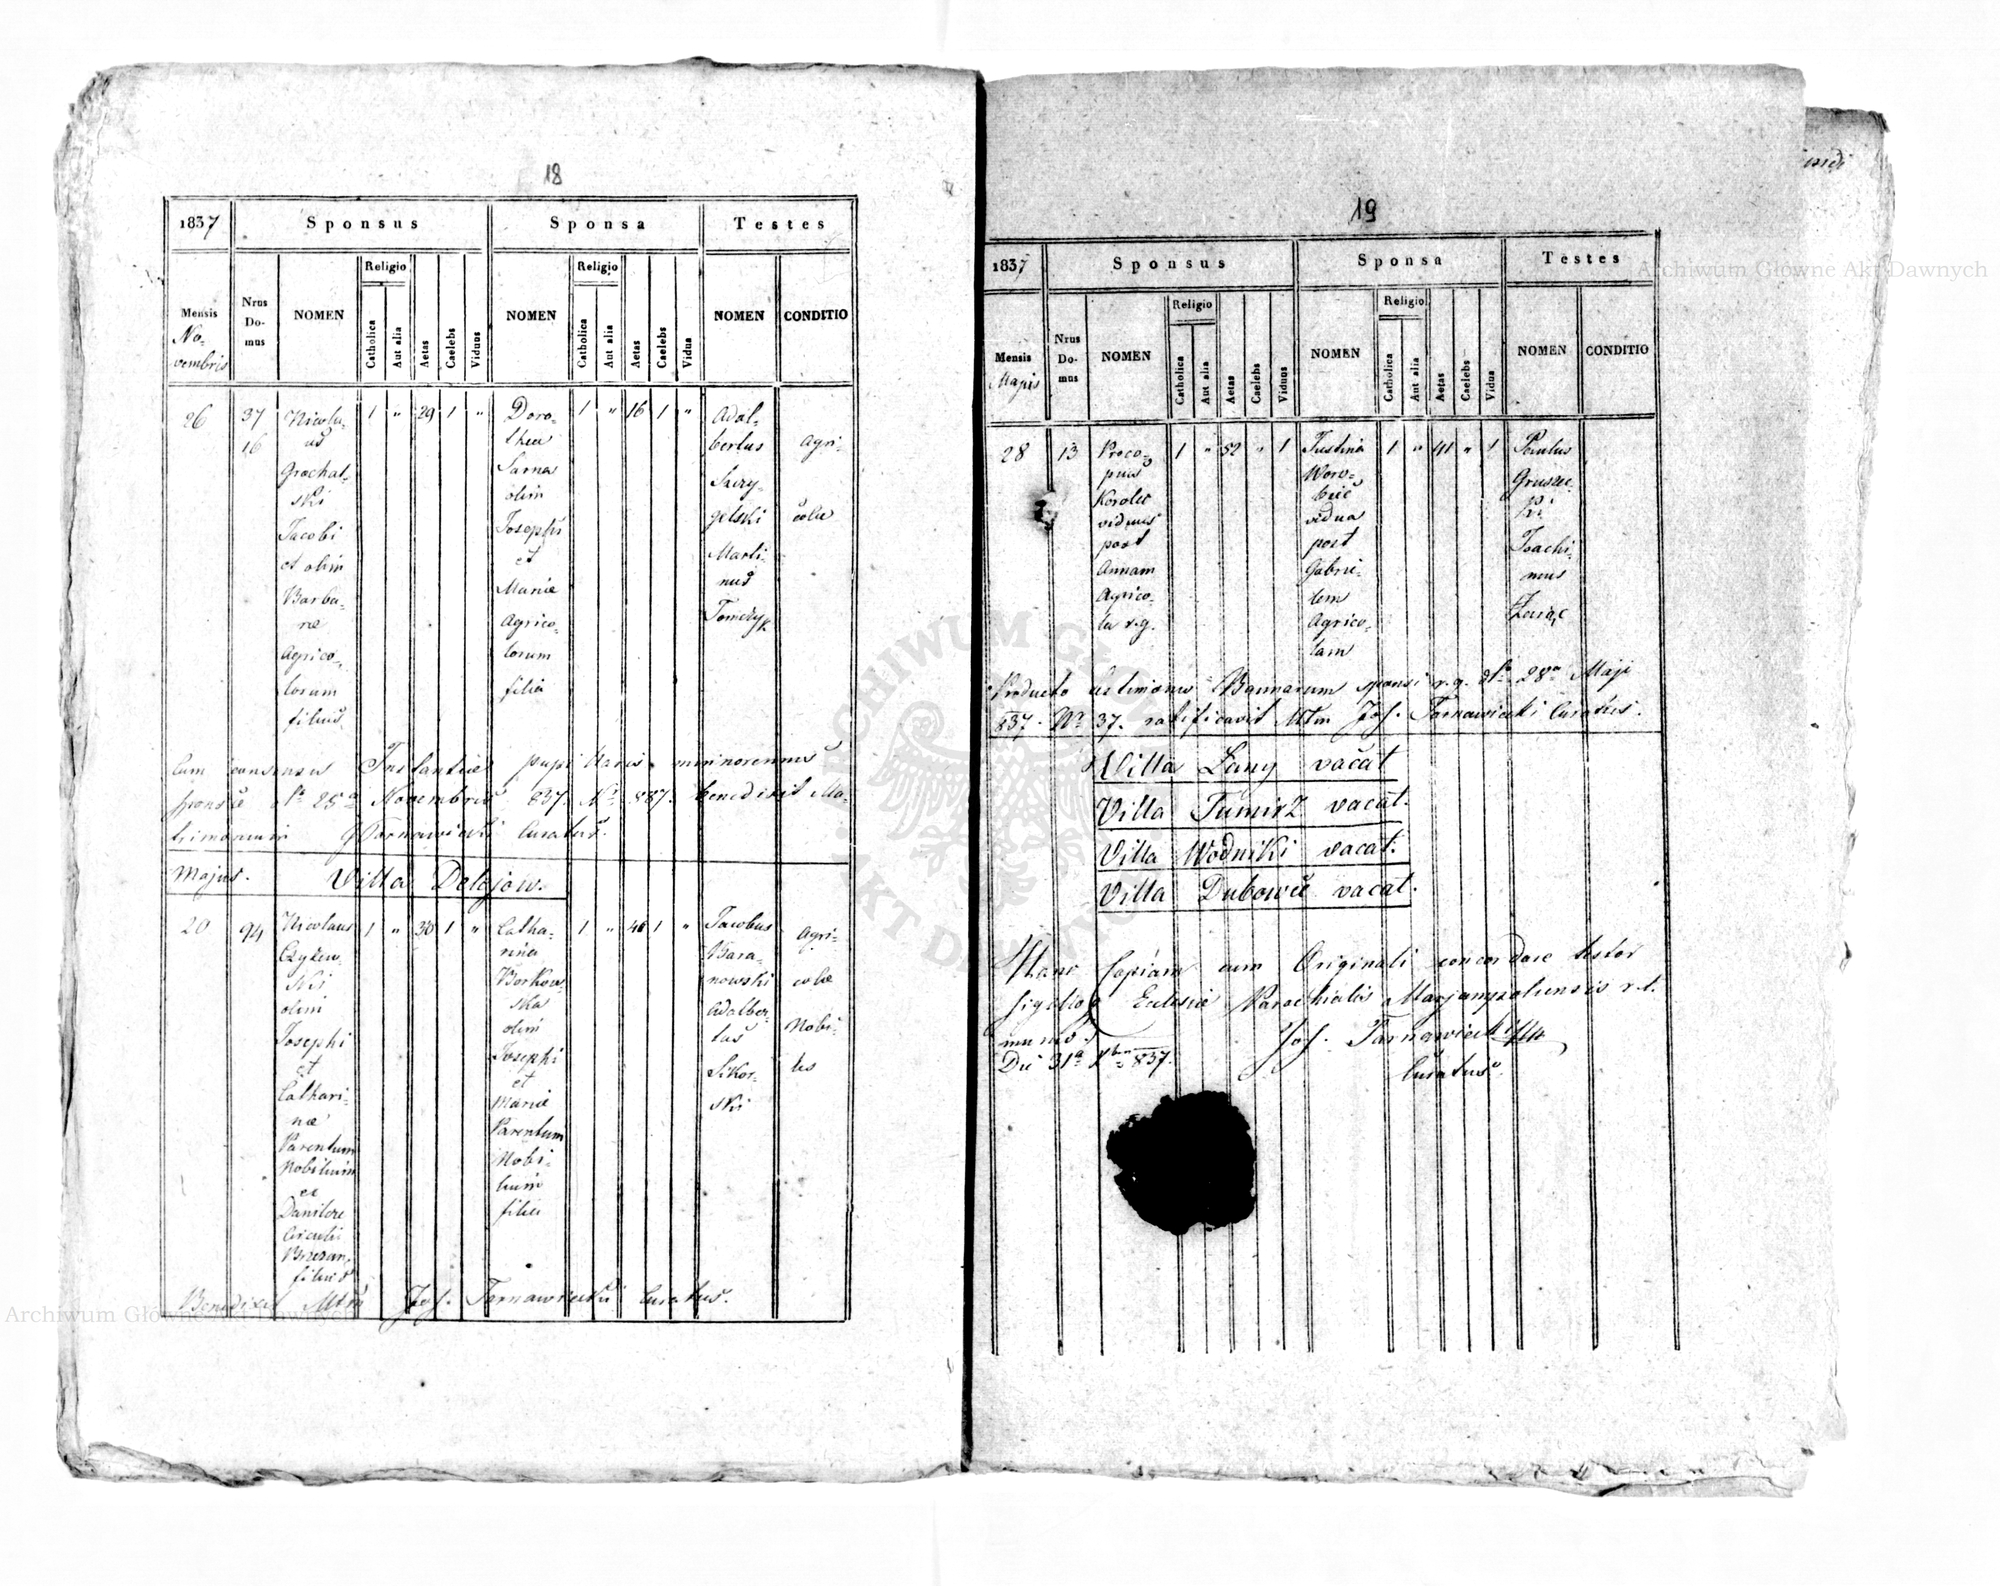 18
1837 Sponsus Sponsa Testes
Mensis Novembris
Nrus Domus
NOMEN
Religio
Catholica
Aut alia
Aetas
Caelebs
Viduus
NOMEN
Religio
Catholica
Aut alia
Aetas
Caelebs
Vidua
NOMEN
CONDITIO
26
37
16
Nicola-
us
Grochal-
ski
Jacobi
et olim
Barba-
rae
Agrico-
larum
filius
1 " 29 1 "
Doro-
thea
Sarna
olim
Josephi
et
Mariae
Agrico-
larum
filia
1 " 16 1 "
Adal-
bertus
gelski
Marti-
nus
Tomczyk
Agri-
colae
Cum consensu Instantiae pupillaris minorennis
sponsae dto 25a Novembris 837 No 887 benedixit Ma-
trimonium J Tarnawiecki Curatus.
Majus. Villa Delejow.
20
94
Nicolaus
Czyżew-
ski
olim
Josephi
et
Cathari-
nae
Parentum
Nobilium
ex
Circuli
Brzezan.
filius
1 " 30 1 "
Catha-
rina
Borkow-
ska
olim
Josephi
et
Mariae
Parentum
Nobi-
lium
filia
1 " 46 1 "
Jacobus
Bara-
nowski
Adalber-
tus
Sikor-
ski
Agri-
colae
Nobi-
lis
Benedixit Mtm Jos. Tarnawiecki Curatus.
19
1837 Sponsus Sponsa Testes
Mensis Majus
Nrus Domus
NOMEN
Religio
Catholica
Aut alia
Aetas
Caelebs
Viduus
NOMEN
Religio
Catholica
Aut alia
Aetas
Caelebs
Vidua
NOMEN
CONDITIO
28
13
Proco-
pius
Korolec
viduus
post
Annam
Agrico-
la r.g.
1 " 52 " 1
Justina
Woro-
bec
vidua
post
Gabrie-
lem
Agrico-
lam
1 " 41 " 1
Paulus
Gruszec-
ki
Joachi-
mus
Zając
Producto testimonio Bannorum sponsi r.g. dto 28a Maji
837. No 37. ratificavit Mtm Jos. Tarnawiecki Curatus.
Villa Łany vacat
Villa Tumirz vacat.
Villa Wodniki vacat.
Villa Dubowce vacat.
Hanc Copiam cum Originali concordare testor
sigilloq Eclesiae Parochialis Marjampolensis r.l.
munio.
Die 31a Xbris 837.
Jos. Tarnawiecki
Curatus.
ARCHIWUM GŁÓWNE AKT DAWNYCH
Archiwum Główne Akt Dawnych
Archiwum Główne Akt Dawnych